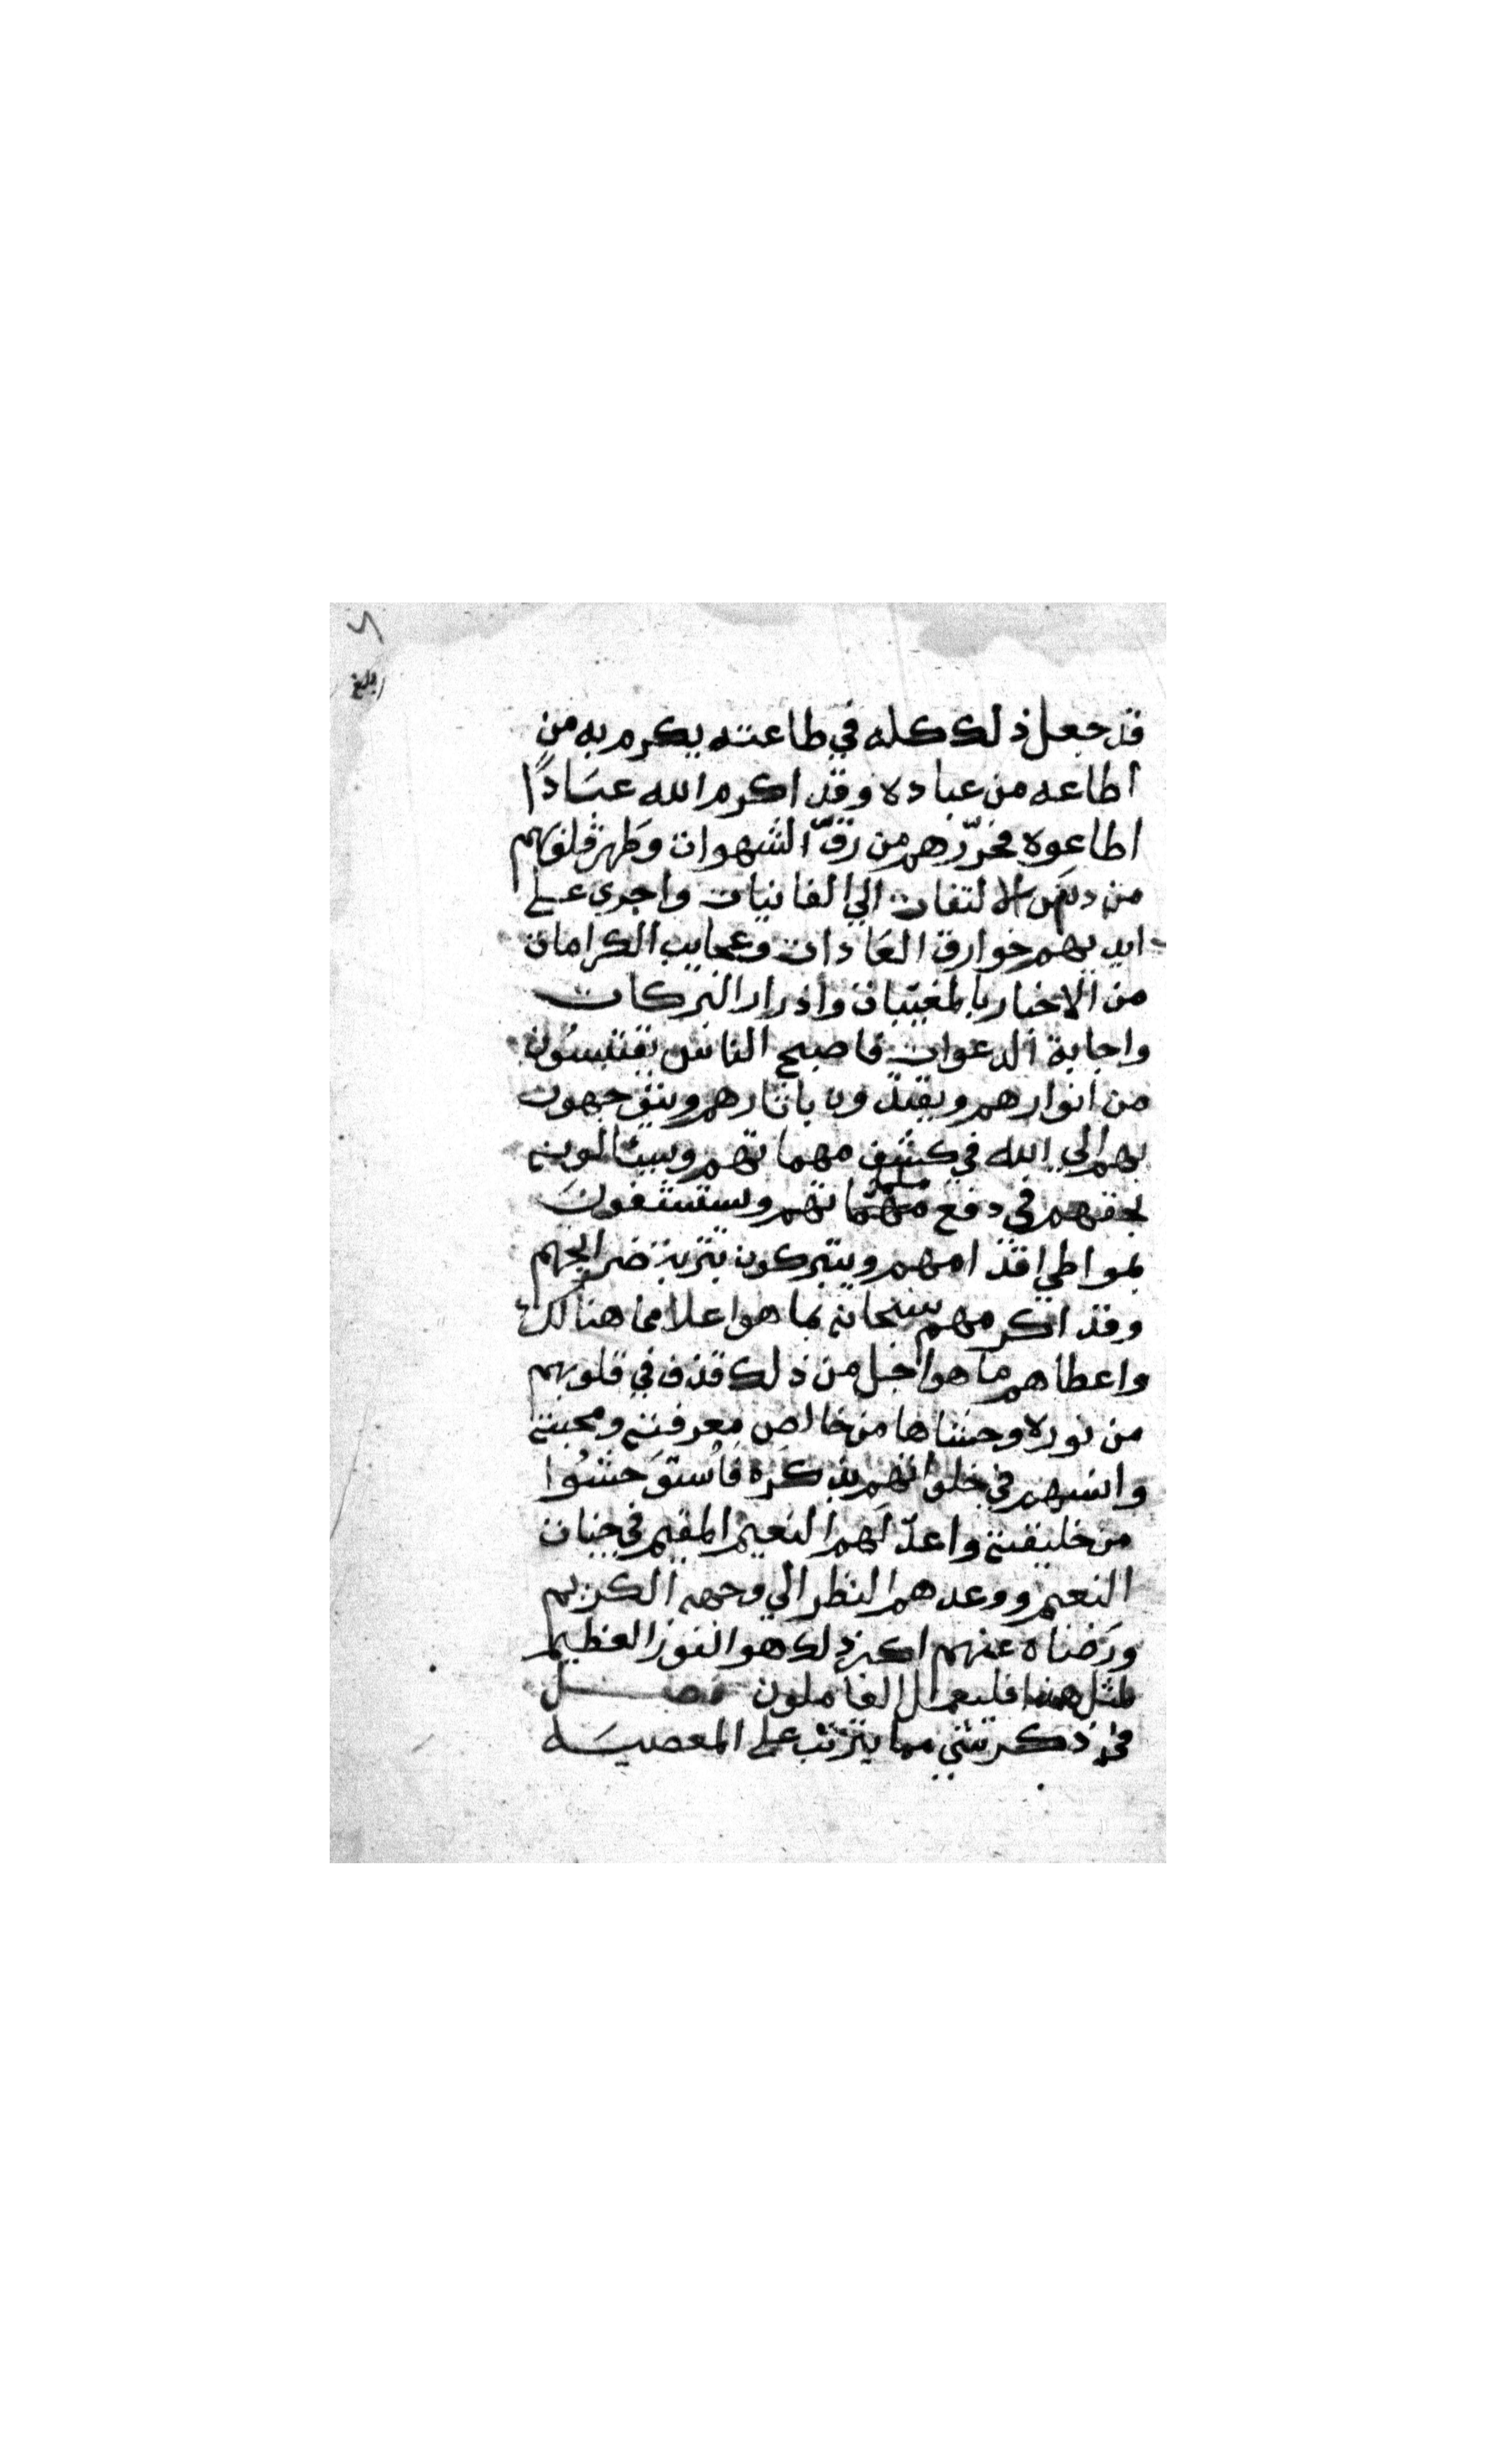 بلغ
قد جعل ذلك كله في طاعته يكرم به من
اطاعه من عباده وقد اكرم الله عبَادًا
اطاعوه فحرّرهم من رقّ الشهوات وَطهر قلوبهم
من دنَس الالتفات الي الفانيات واجري علي
ايديهم خوارق العَادات وعجايب الكرامات
من الاخبار بالمغيبات وادرار البركات
واجابة الدعوات فاصبح الناس يقتبسُون
من انوارهم ويقتدون باثارهم ويتوجهون
بهم الي الله في كشف مهماتهم ويسئالونه
بحقهم في دفع ملماتهم ويستشفونَ
بمواطي اقدامهم ويتبركون بتربة ضرايحهم
وقد اكرمهم سبحانه بما هو اعلا مما هنالك
واعطاهم ما هو اجل من ذلك قذف في قلوبهم
من نوره وحشاها من خالص معرفته ومحبته
وانسهم في خلواتهم بذكره فاستوَحشُوا
من خليقته واعدّ لهم النعيم المقيم في جنات
النعيم ووعدهم النظر الي وجهه الكريم
ورَضاه عنهم اكبر ذلك هو الفوز العظيم
لمثل هذا فليعمل العاملون فصل
في ذكر شي مما يترتب علي المعصيَه